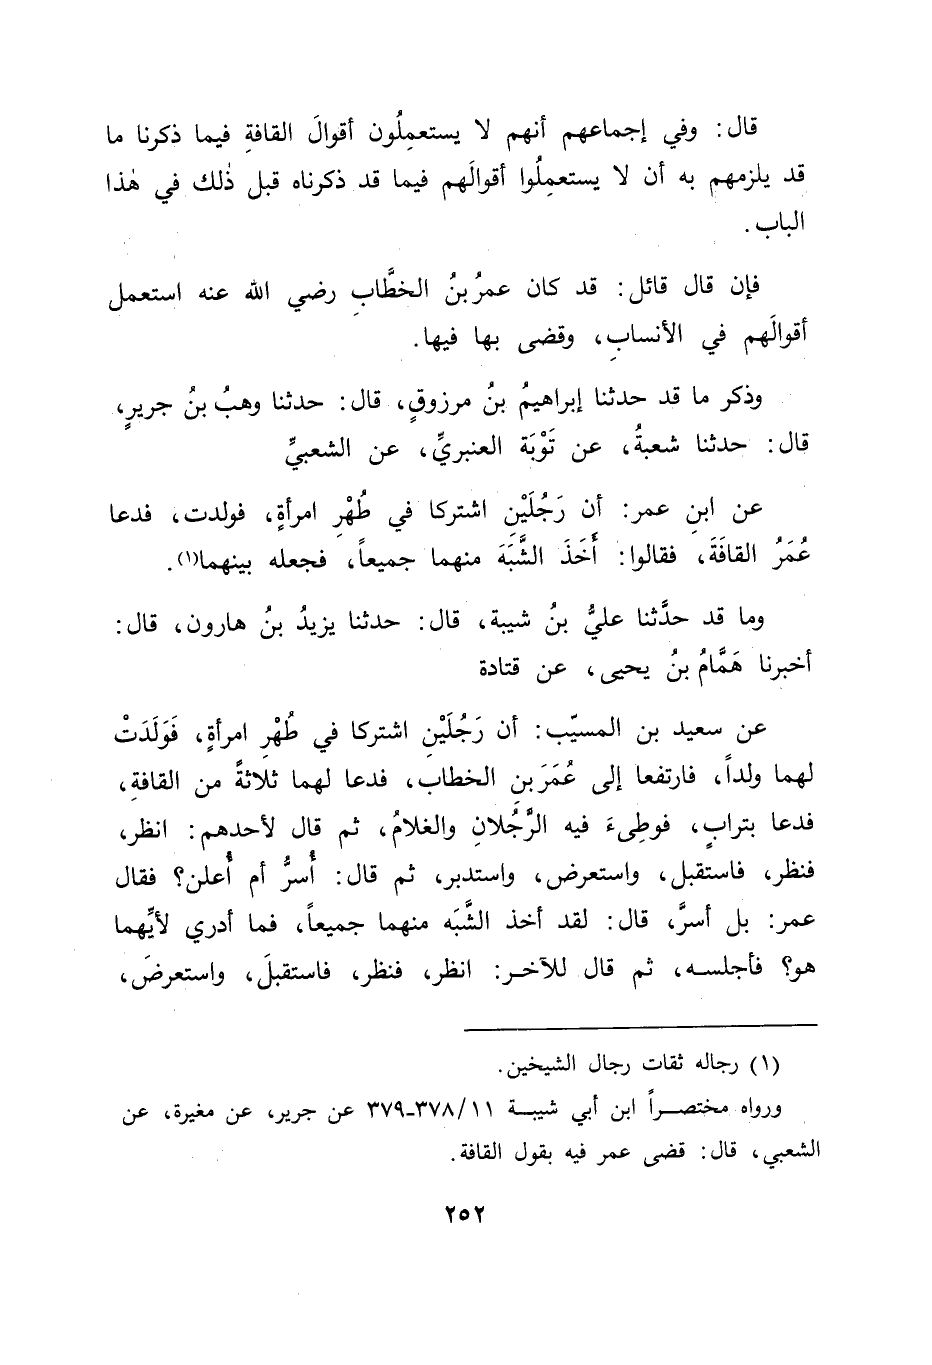 قال: وفي إجماعهم أنهم لا يستعمِلُون أقوالَ القافةِ فيما ذكرنا ما
قد يلزمهم به أن لا يستعمِلُوا أقوالَهم فيما قد ذكرناه قبل ذٰلك في هٰذا
الباب.
فإن قال قائل: قد كان عمرُ بنُ الخطَّابِ رضي الله عنه استعمل
أقوالَهم في الأنسابِ، وقضى بها فيها.
وذكر ما قد حدثنا إبراهيمُ بنُ مرزوقٍ، قال: حدثنا وهبُ بنُ جريرٍ،
قال: حدثنا شعبةُ، عن تَوْبَة العنبريِّ، عن الشعبيِّ
عن ابنِ عمر: أن رَجُلَيْنِ اشتركا في طُهْرِ امرأةٍ، فولدت، فدعا
عُمَرُ القافَةَ، فقالوا: أَخَذَ الشَّبَهَ منهما جميعاً، فجعله بينهما(١).
وما قد حدَّثنا عليُّ بنُ شيبة، قال: حدثنا يزيدُ بنُ هارون، قال:
أخبرنا هَمَّامُ بنُ يحيى، عن قتادة
عن سعيد بن المسيّب: أن رَجُلَيْنِ اشتركا في طُهْرِ امرأةٍ، فَوَلَدَتْ
لهما ولداً، فارتفعا إلى عُمَرَ بن الخطاب، فدعا لهما ثلاثةً من القافةِ،
فدعا بترابٍ، فوطِىءَ فيه الرَّجُلانِ والغلامُ، ثم قال لأحدهم: انظر،
فنظر، فاستقبل، واستعرض، واستدبر، ثم قال: أُسرُّ أم أُعلن؟ فقال
عمر: بل أسرَّ، قال: لقد أخذ الشَّبَه منهما جميعاً، فما أدري لأيِّهما
هو؟ فأجلسه، ثم قال للآخر: انظر، فنظر، فاستقبلَ، واستعرضَ،
(١) رجاله ثقات رجال الشيخين.
ورواه مختصراً ابن أبي شيبة ١١/٣٧٨-٣٧٩ عن جرير، عن مغيرة، عن
الشعبي، قال: قضى عمر فيه بقول القافة.
٢٥٢